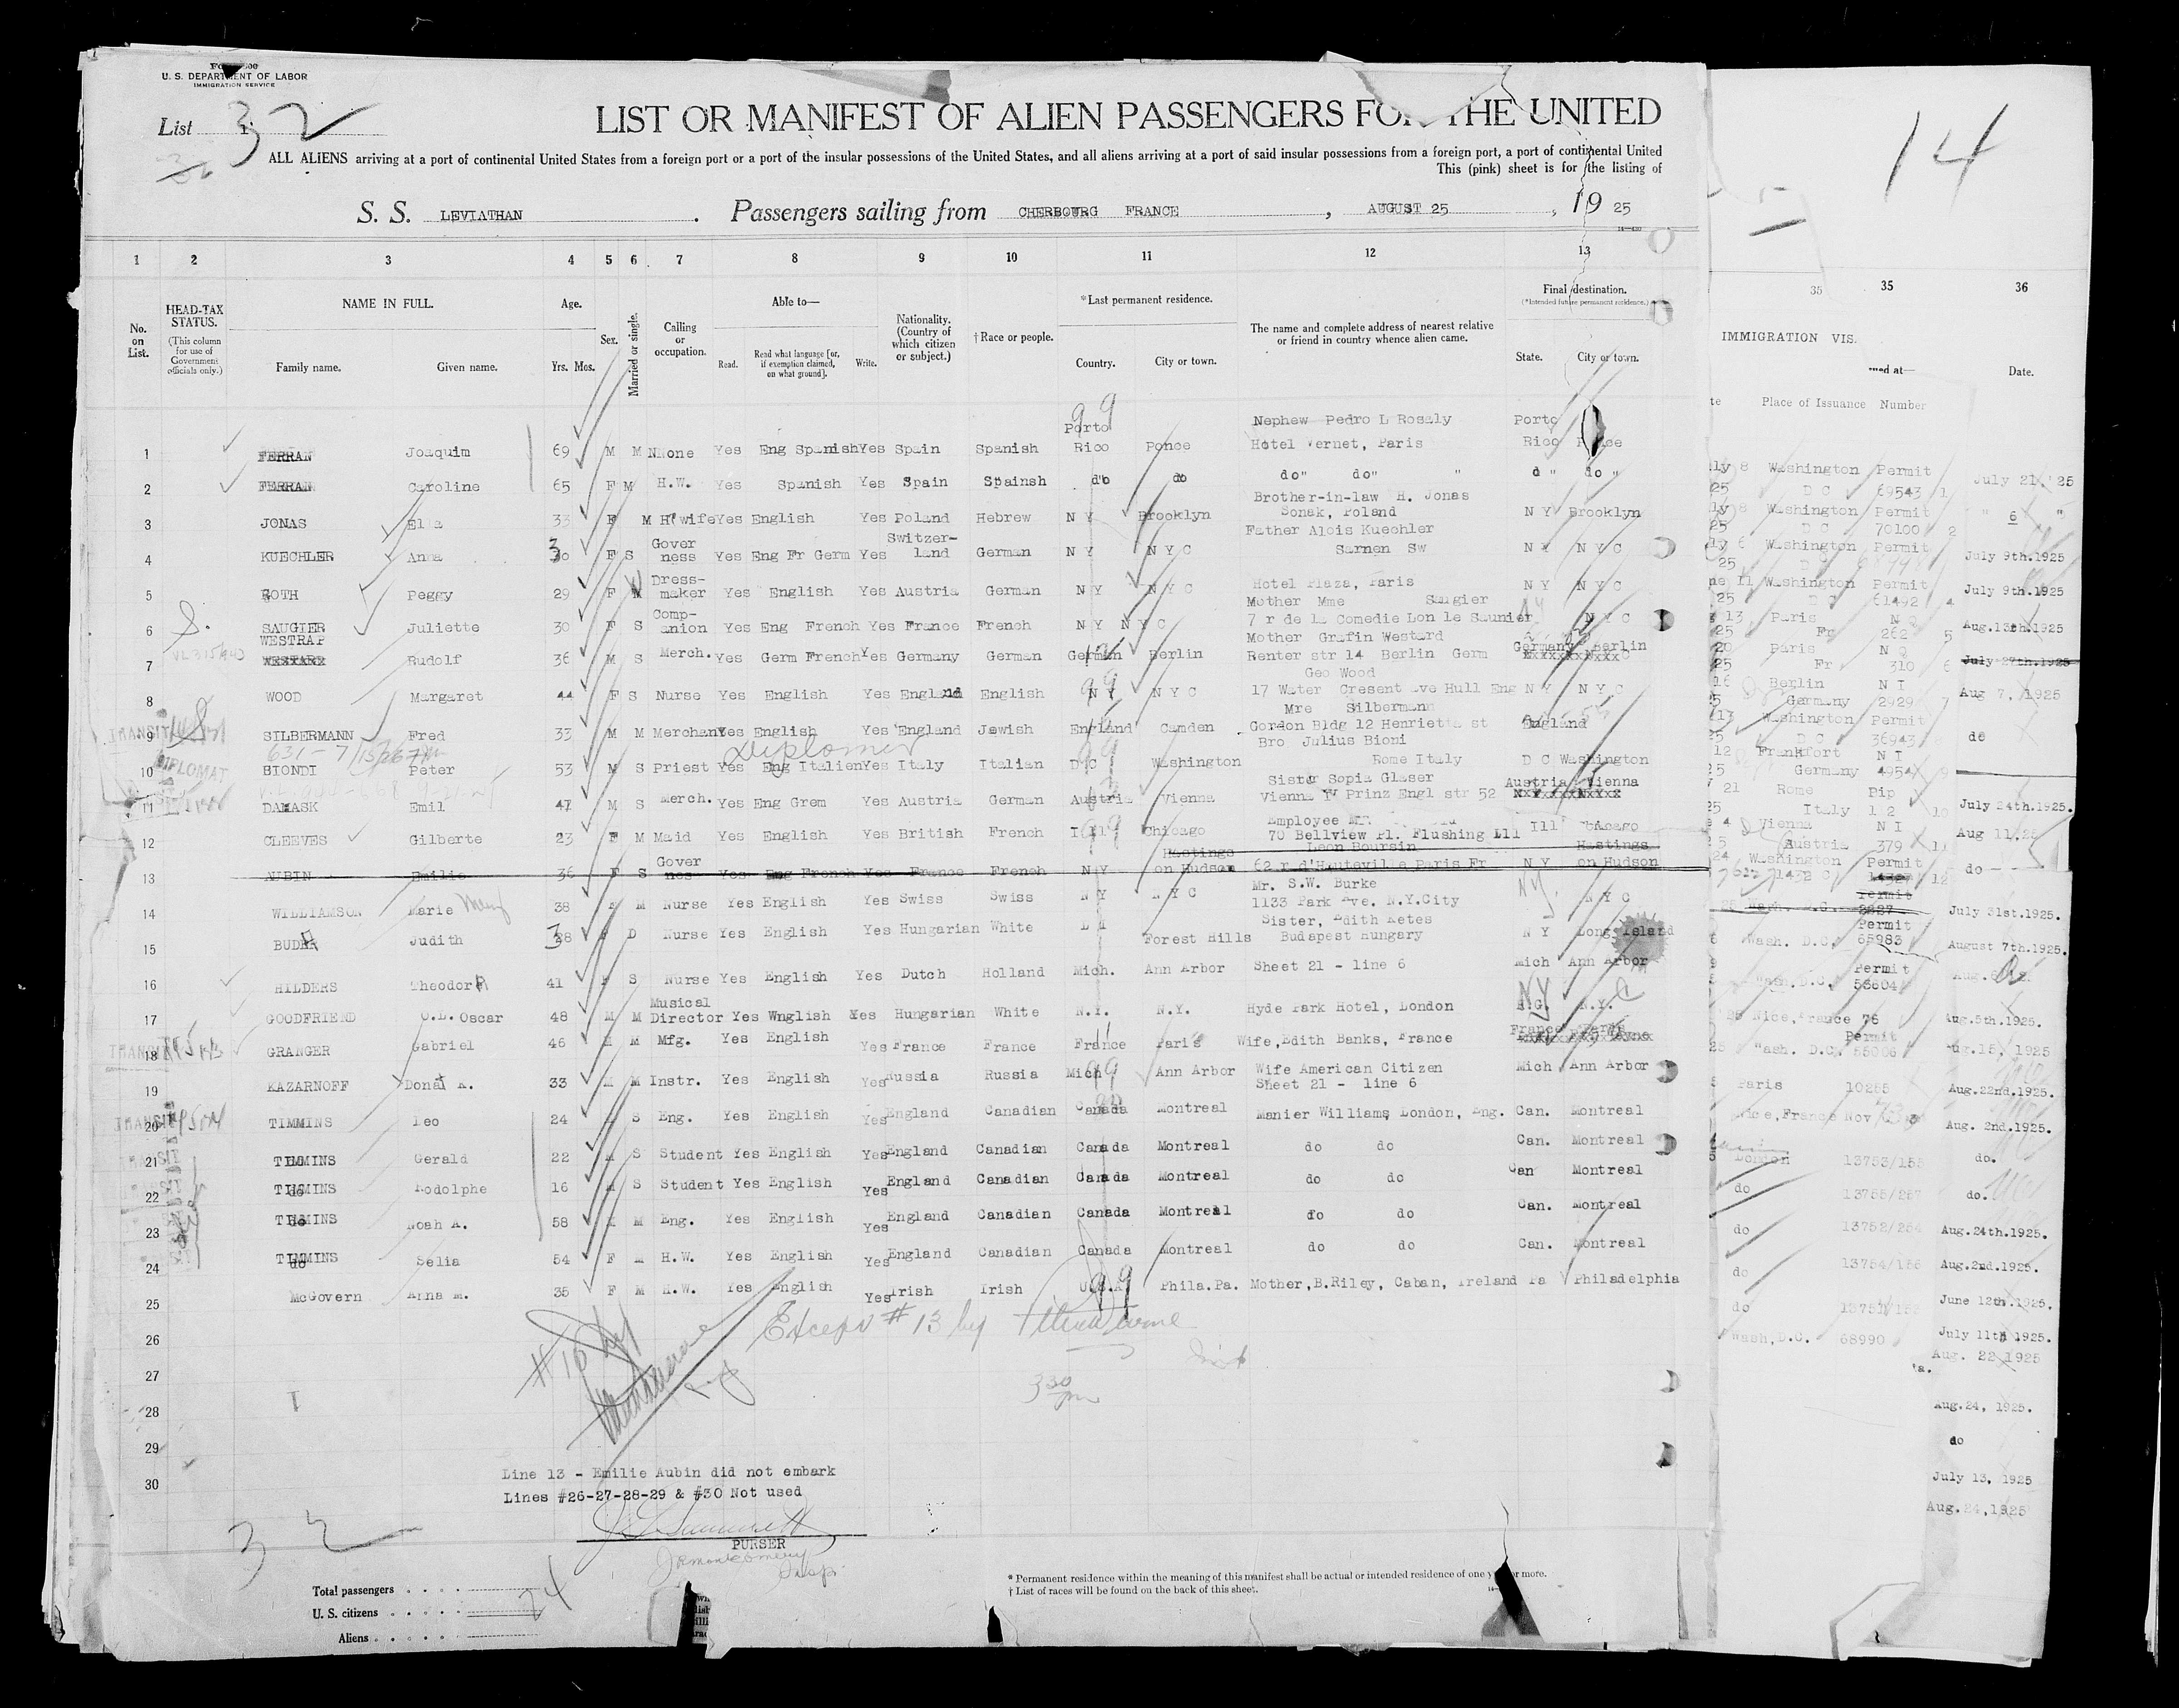 U. S. DEPARTMENT OF LABOR
IMMIGRATION SERVICE
List 32
14
LIST OR MANIFEST OF ALIEN PASSENGERS FOR THE UNITED
ALL ALIENS arriving at a port of continental United States from a foreign port or a port of the insular possessions of the United States, and all aliens arriving at a port of said insular possessions from a foreign port, a port of continental United
This (pink) sheet is for the listing of
S. S. LEVIATHAN . Passengers sailing from CHERBOURG FRANCE , AUGUST 25 , 19 25
1 2 3 4 5 6 7 8 9 10 11 12 13 35 35 36
No. on List. HEAD-TAX STATUS. (This column for use of Government officials only.) NAME IN FULL. Family name. Given name. Age. Yrs. Mos. Sex. Married or single. Calling or occupation. Able to— Read. Read what language [or, if exemption claimed, on what ground]. Write. Nationality. (Country of which citizen or subject.) †Race or people. *Last permanent residence. Country. City or town. The name and complete address of nearest relative or friend in country whence alien came. Final destination. (*Intended future permanent residence.) State. City or town.
IMMIGRATION VIS.
Place of Issuance Number Date.
1 FERRAN Joaquim 69 M M None Yes Eng Spanish Yes Spain Spanish Porto Rico Ponce Nephew Pedro L Rosaly Hotel Vernet, Paris Porto Rico
2 FERRAN Caroline 65 F M H.W. Yes Spanish Yes Spain Spainsh do do do" do" " d " do "
3 JONAS Ella 33 F M H wife Yes English Yes Poland Hebrew N Y Brooklyn Brother-in-law H. Jonas Sonak, Poland N Y Brooklyn
4 KUECHLER Anna 30 F S Gover ness Yes Eng Fr Germ Yes Switzer- land German N Y N Y C Father Alois Kuechler Sarnen Sw N Y N Y C
5 ROTH Peggy 29 F M Dress- maker Yes English Yes Austria German N Y N Y C Hotel Plaza, Paris N Y N Y C
6 SAUGIER Juliette 30 F S Comp- anion Yes Eng French Yes France French N Y N Y C Mother Mme Saugier 7 r de la Comedie Lon le Saunier N Y C
7 WESTRAP Rudolf 36 M S Merch. Yes Germ French Yes Germany German German Berlin Mother Grafin Westard Renter str 14 Berlin Germ Germany Berlin
8 WOOD Margaret 44 F S Nurse Yes English Yes England English N Y N Y C Geo Wood 17 Water Cresent ave Hull Eng N Y N Y C
TRANSIT
9 SILBERMANN Fred 33 M M Merchant Yes English Yes England Jewish England Camden Mre Silbermann Gordon Bldg 12 Henrietta st England
Diplomat
DIPLOMAT
10 BIONDI Peter 53 M S Priest Yes Eng Italien Yes Italy Italian D C Washington Bro Julius Bioni Rome Italy D C Washington
11 DAMASK Emil 47 M S Merch. Yes Eng Grem Yes Austria German Austria Vienna Sister Sopia Glaser Vienna IV Prinz Engl str 52 Austria Vienna
12 CLEEVES Gilberte 23 F M Maid Yes English Yes British French Ill Chicago Employee 70 Bellview Pl. Flushing Lll Ill Chicago
13 AUBIN Emilie 36 F S Gover nes Yes Eng French Yes France French N Y Hastings on Hudson Leon Boursin 62 r d'Hauteville Paris Fr N Y Hastings on Hudson
14 WILLIAMSON Marie Mary 38 F M Nurse Yes English Yes Swiss Swiss N Y N Y C Mr. S.W. Burke 1133 Park Ave. N.Y.City NY N Y C
15 Judith 38 F D Nurse Yes English Yes Hungarian White L I Forest Hills Sister, Edith Ketes Budapest Hungary N Y Long Island
16 HILDERS Theodora 41 F S Nurse Yes English Yes Dutch Holland Mich. Ann Arbor Sheet 21 - line 6 Mich Ann Arbor
17 GOODFRIEND Oscar 48 M M Musical Director Yes Wnglish Yes Hungarian White N.Y. N.Y. Hyde Park Hotel, London NY N.Y. C
TRANSIT
18 GRANGER Gabriel 46 M M Mfg. Yes English Yes France France France Paris Wife,Edith Banks, France France Paris
19 KAZARNOFF Donat A. 33 M M Instr. Yes English Yes Russia Russia Mich Ann Arbor Wife American Citizen Sheet 21 - line 6 Mich Ann Arbor
TRANSIT
20 TIMMINS Leo 24 M S Eng. Yes English Yes England Canadian Canada Montreal Manier Williams, London, Eng. Can. Montreal
21 TIMMINS Gerald 22 M S Student Yes English Yes England Canadian Canada Montreal do do Can. Montreal
22 TIMMINS Rodolphe 16 M S Student Yes English Yes England Canadian Canada Montreal do do Can Montreal
23 TIMMINS Noah A. 58 M M Eng. Yes English Yes England Canadian Canada Montreal do do Can. Montreal
24 TIMMINS Selia 54 F M H.W. Yes English Yes England Canadian Canada Montreal do do Can. Montreal
25 McGovern Anna M. 35 F M H.W. Yes English Yes Irish Irish U.S.A. Phila.Pa. Mother,B.Riley, Caban, Ireland Pa Philadelphia
26
27
28
29
30
Washington Permit July 21,'25
D C 69543 1
Washington Permit " 6 "
D C 70100 2
Washington Permit July 9th.1925
Washington Permit July 9th.1925
D C 61492 4
Paris N Q Aug.13th.1925
Fr 262 5
Paris N Q July 27th.1925
Fr 310 6
Berlin N I Aug 7, 1925
Germany 2929 7
Washington Permit
D C 36943 do
Frankfort N I
Germany 4954 9
Rome Dip July 24th.1925.
Italy 12 10
Vienna N I Aug 11.25
Austria 379 11
Washington Permit do
Permit 2827 July 31st.1925.
Wash. D.C. Permit 65983 August 7th.1925.
Wash. D.C. Permit 53604
Nice,France 76 Aug.5th.1925.
Wash. D.C. Permit 55006 Aug.15, 1925
Paris 10255 Aug.22nd.1925.
Nice,France Nov Aug. 2nd.1925.
London 13753/155 do.
do 13755/257 do.
do 13752/254 Aug.24th.1925.
do 13754/156 Aug.2nd.1925.
do June 12th.1925.
Wash,D.C. 68990 July 11th 1925.
Aug. 22 1925
Aug.24, 1925.
do
July 13, 1925
Aug.24,1925
Except #13 by
330 pm
Line 13 - Emilie Aubin did not embark
Lines #26-27-28-29 & #30 Not used
PURSER
J R Montgomery
Insp.
32
Total passengers 24
U. S. citizens
Aliens
* Permanent residence within the meaning of this manifest shall be actual or intended residence of one year or more.
† List of races will be found on the back of this sheet.